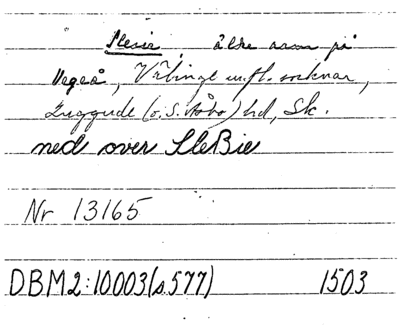 Slesie, äldre namn på
Vegeå, Välinge m.fl. socknar,
Luggude (o. S. Åsbo) hd, Sk.
ned over SleBie
Nr 13165
DBM2:10003(s.577) 1503